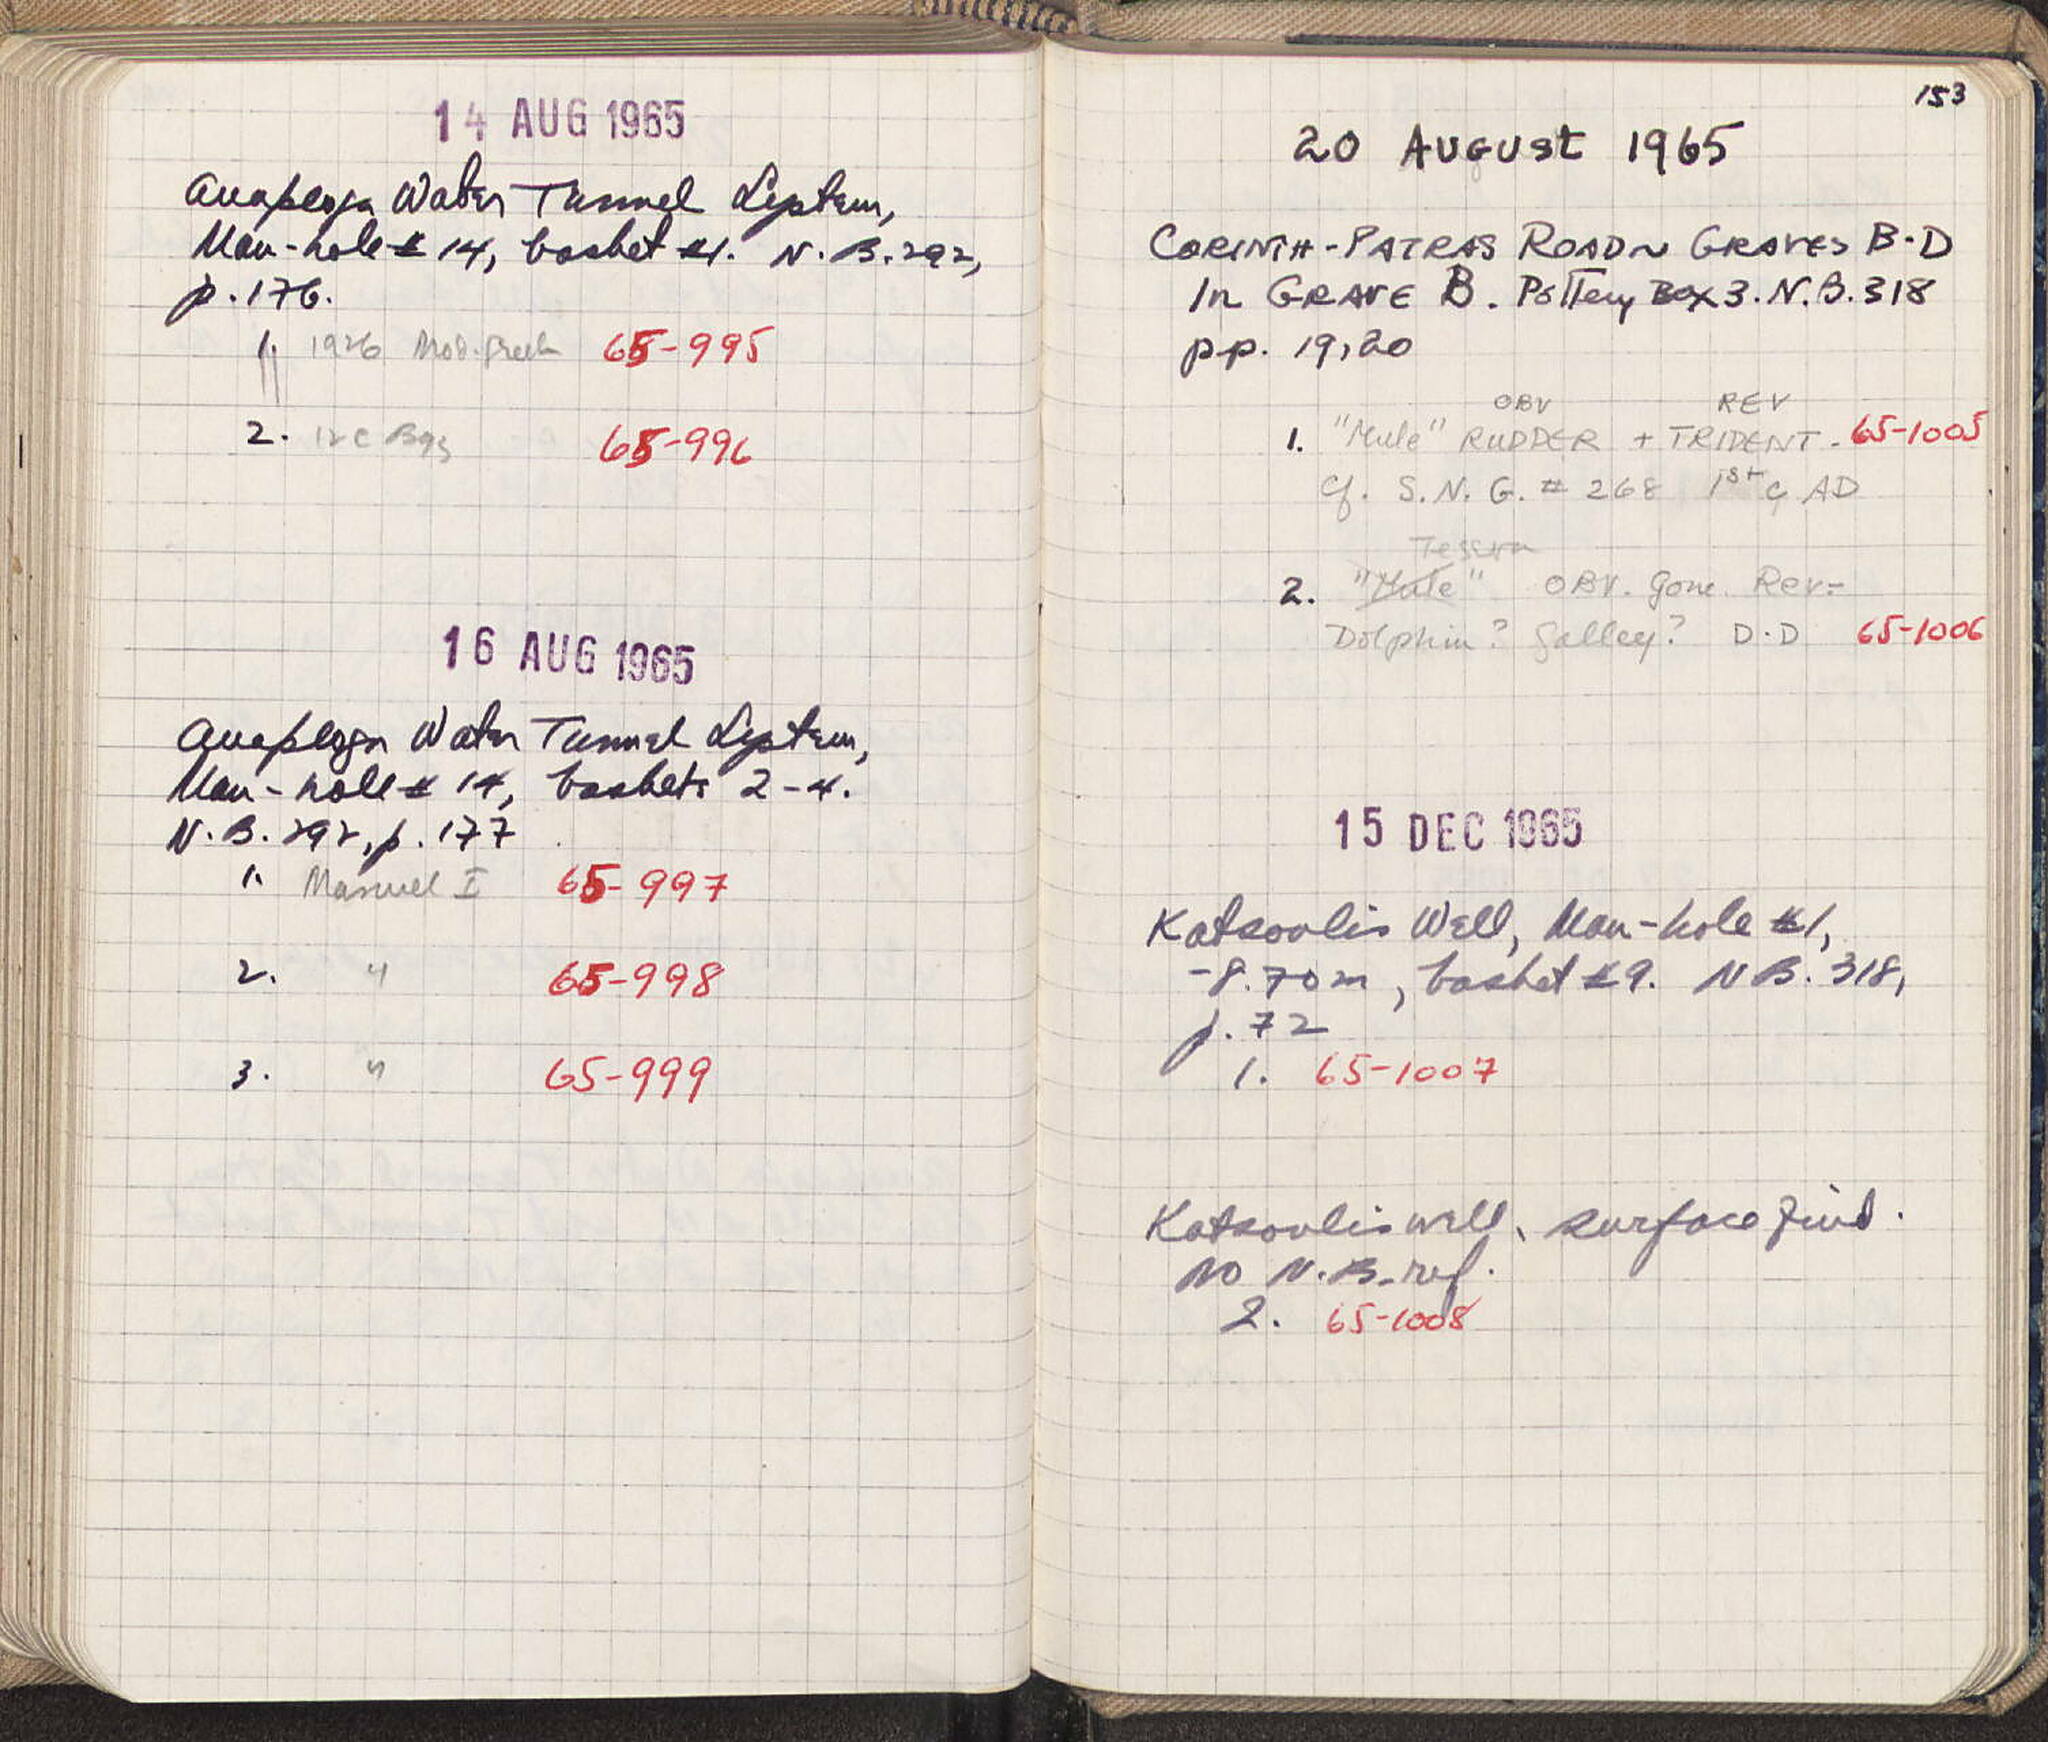 14 AUG 1965
Anaploga Water Tunnel System,
Man-hole # 14, basket #1. N.B. 292,
p. 176.
1. 1926 Mod. Greek 65-995
2. 12 C Byz 65-996
16 AUG 1965
Anaploga Water Tunnel System,
Man-hole # 14, baskets 2-4.
N.B. 292, p. 177
1. Manuel I 65-997
2. " 65-998
3. " 65-999
153
20 AUGUST 1965
CORINTH-PATRAS ROAD GRAVES B-D
In GRAVE B. Pottery Box 3. N.B. 318
pp. 19, 20
OBV REV
1. "Mule" RUDDER + TRIDENT - 65-1005
cf. S.N.G. # 268 1st c AD
Tessera
2. "Mule" OBV. Gone. Rev=
Dolphin? Galley? D.D 65-1006
15 DEC 1965
Katsoulis Well, Man-hole #1,
-8.70m, basket #9. NB. 318,
p. 72
1. 65-1007
Katsoulis well, surface find.
No N.B. ref.
2. 65-1008